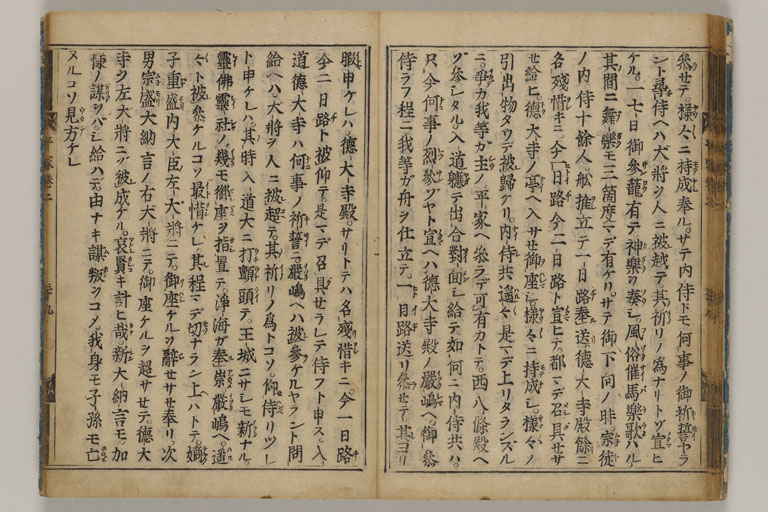 参セテ。様々ニ持成奉ル。サテ内侍ドモ何事ノ御祈誓ヤラ
ント尋侍ヘハ大将ヲ人ニ被越テ其祈リノ為ナリトゾ宣ヒ
ケル。一七日御参籠有テ神楽ヲ奏シ。風俗催馬楽歌ハル。
其間ニ舞楽モ三箇度マデ有ケリ。サテ御下向ノ時。宗徒
ノ内侍十餘人舩推立テ一日路奉送。徳大寺殿餘ニ
名残惜キニ。今一日路今二日路ト宣ヒテ都マデ召具セサ
セ給ヒ徳大寺ノ亭ヘ入サセ御座シ。様々ニ持成シ。様々ノ
引出物タウデ被歸ケリ。内侍共。遙々是マデ上リタランズル
ニ。争カ我等カ主ノ平家ヘ参ラデ可有カトテ。西八條殿ヘ
ゾ参シタル。入道軈テ出合對面シ給テ如何ニ内侍共ハ。
只今何事ノ烈参ゾヤト宣ヘハ徳大寺殿ノ嚴嶋ヘ御参
侍ラフ程ニ我等カ舟ヲ仕立テ。一日路送リ参セテ。其ヨリ
暇申ケレハ。德大寺殿。サリトテハ名残惜キニ今一日路
今二日路ト被仰テ。是マデ召具セラレテ侍フト申ス。入
道德大寺ハ何事ノ祈誓ニ嚴嶋ヘハ被参ケルヤラント問
給ヘハ。大将ヲ人ニ被超テ。其祈リノ為トコソ。仰侍リツレ
ト申ケレハ。其時入道大ニ打顫頭テ。王城ニサレモ新ナル
靈佛靈社ノ。幾モ御座ヲ指置テ。浄海カ奉崇嚴嶋ヘ。遙
々ト被参ケルコソ最惜ケレ。其程マデ切ナラン上ハトテ。嫡
子重盛内大臣左大将ニテ。御座ケルヲ辞セサセ奉リ。次
男宗盛大納言ノ右大将ニテ。御座ケルヲ超サセテ。德大
寺ヲ左大将ニゾ被成ケル。哀賢キ計ヒ哉新大納言モ。加
様ノ謀ヲバシ給ハデ。由ナキ謀叛ヲコメ我身モ子孫モ亡
ヌルコソ見方ケレ